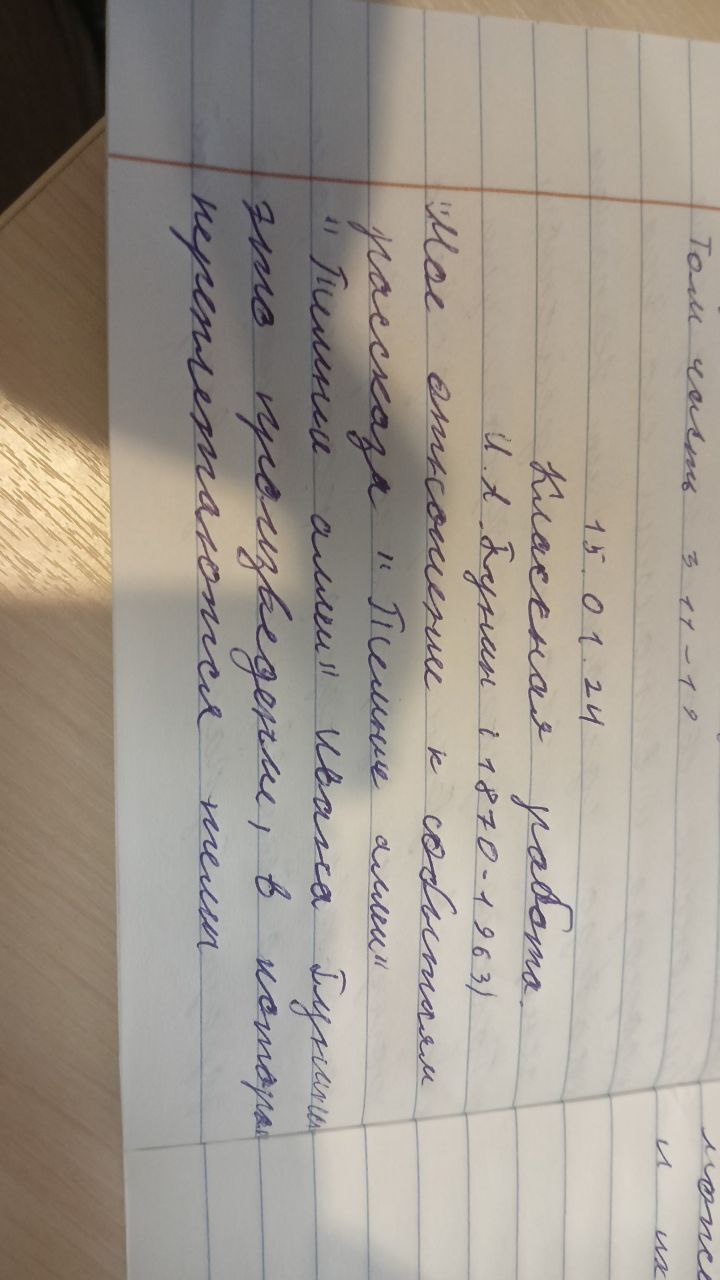 Толм часть 3 11-19
15.01.24
Классная работа.
И.А.Бунин (1870-1963)
"Мое отношение к событиям
рассказа "Темные аллеи"
"Темные аллеи" Ивана Бунина
это произведение, в котором
переплетаются темы